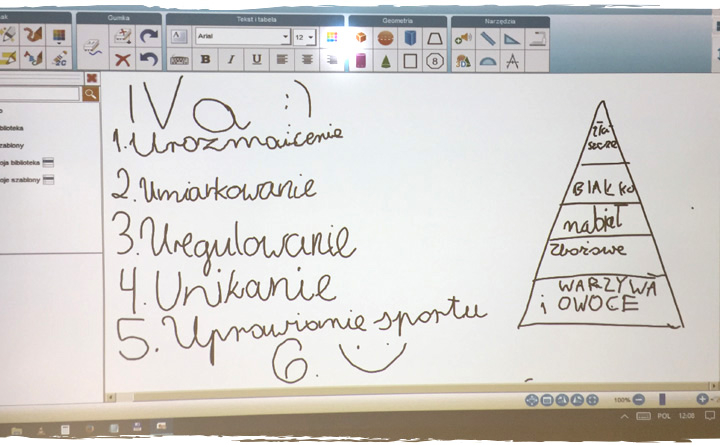 Gumka
Tekst i tabela
Geometria
Narzędzia
Arial
12
B I U
8
blioteka
zablony
nja biblioteka
nje szablony
IV a :)
1. Urozmaicenie
2. Umiarkowanie
3. Uregulowanie
4. Unikanie
5. Uprawianie sportu
6.
tłu
szcze
BIAŁKO
nabiał
zbożowe
WARZYWA
i OWOCE
100%
POL 12:08